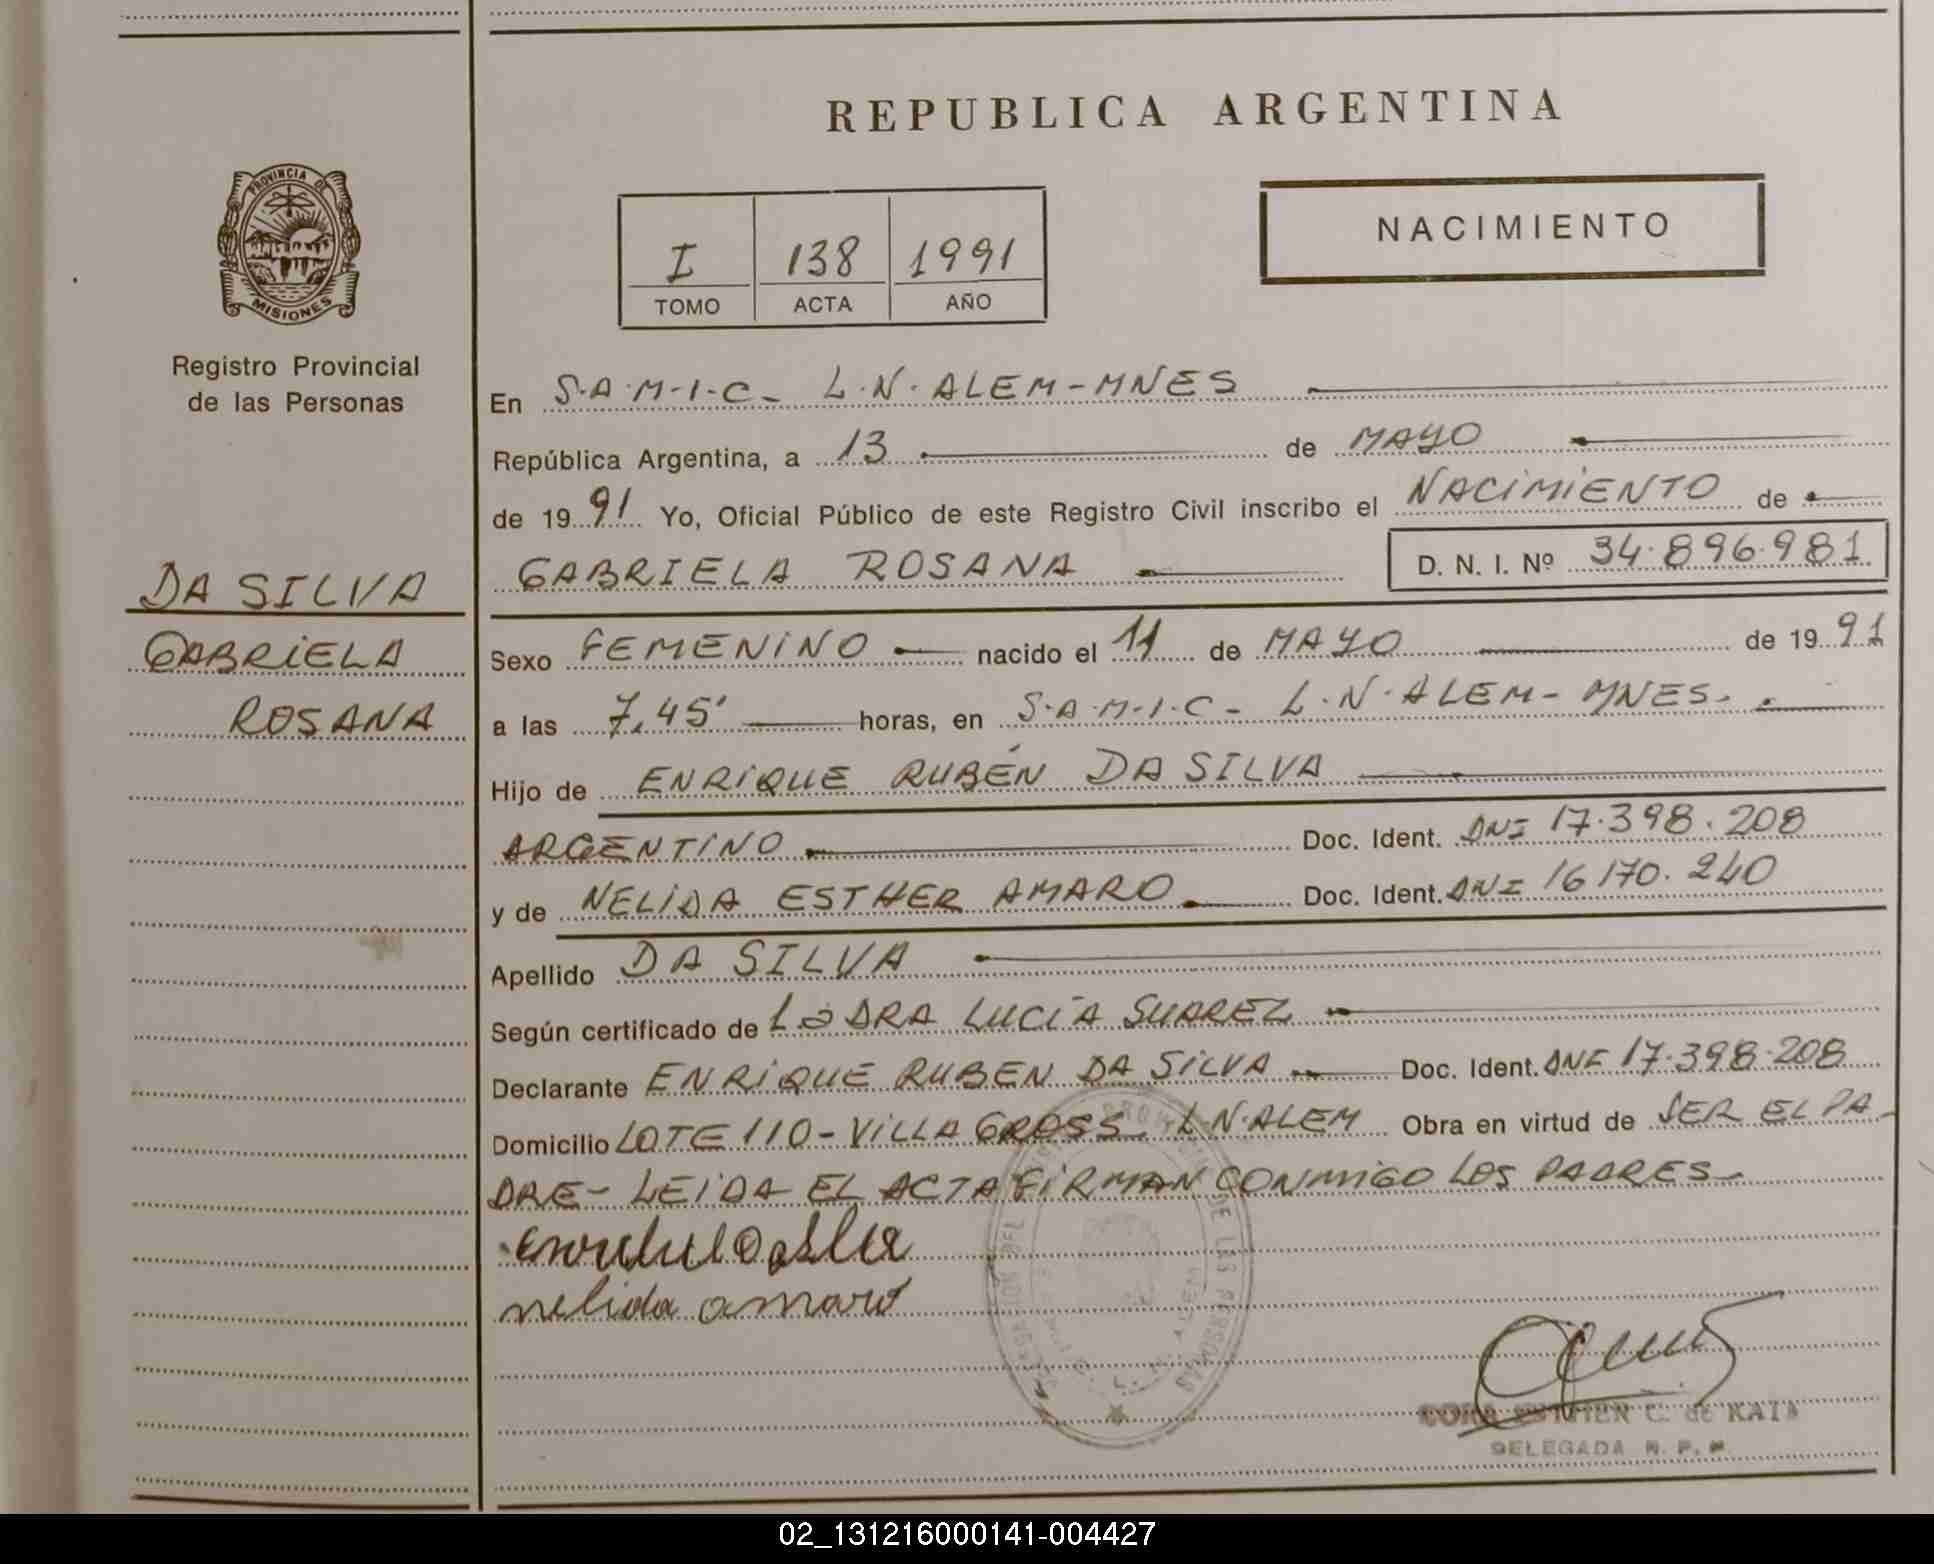 REPUBLICA ARGENTINA
PROVINCIA DE
MISIONES
Registro Provincial
de las Personas
I 138 1991
TOMO ACTA AÑO
NACIMIENTO
En S.A.M.I.C- L.N.ALEM-MNES
República Argentina, a 13 de MAYO
de 1991 Yo, Oficial Público de este Registro Civil inscribo el NACIMIENTO de
GABRIELA ROSANA D. N. I. Nº 34.896.981
DA SILVA
GABRIELA
ROSANA
Sexo FEMENINO nacido el 11 de MAYO de 1991
a las 7,45' horas, en S.A.M.I.C- L.N.ALEM- MNES.
Hijo de ENRIQUE RUBÉN DA SILVA
ARGENTINO Doc. Ident. DNI 17.398.208
y de NELIDA ESTHER AMARO Doc. Ident. DNI 16170.240
Apellido DA SILVA
Según certificado de La DRA LUCÍA SUAREZ
Declarante ENRIQUE RUBEN DA SILVA Doc. Ident. DNI 17.398.208
Domicilio LOTE 110-VILLA GROSS L.N.ALEM Obra en virtud de SER EL PA-
DRE- LEIDA EL ACTA FIRMAN CONMIGO LOS PADRES-
nelida amaro
DE LAS PERSONAS
ESTHER C. de
DELEGADA R. P. P.
02_131216000141-004427